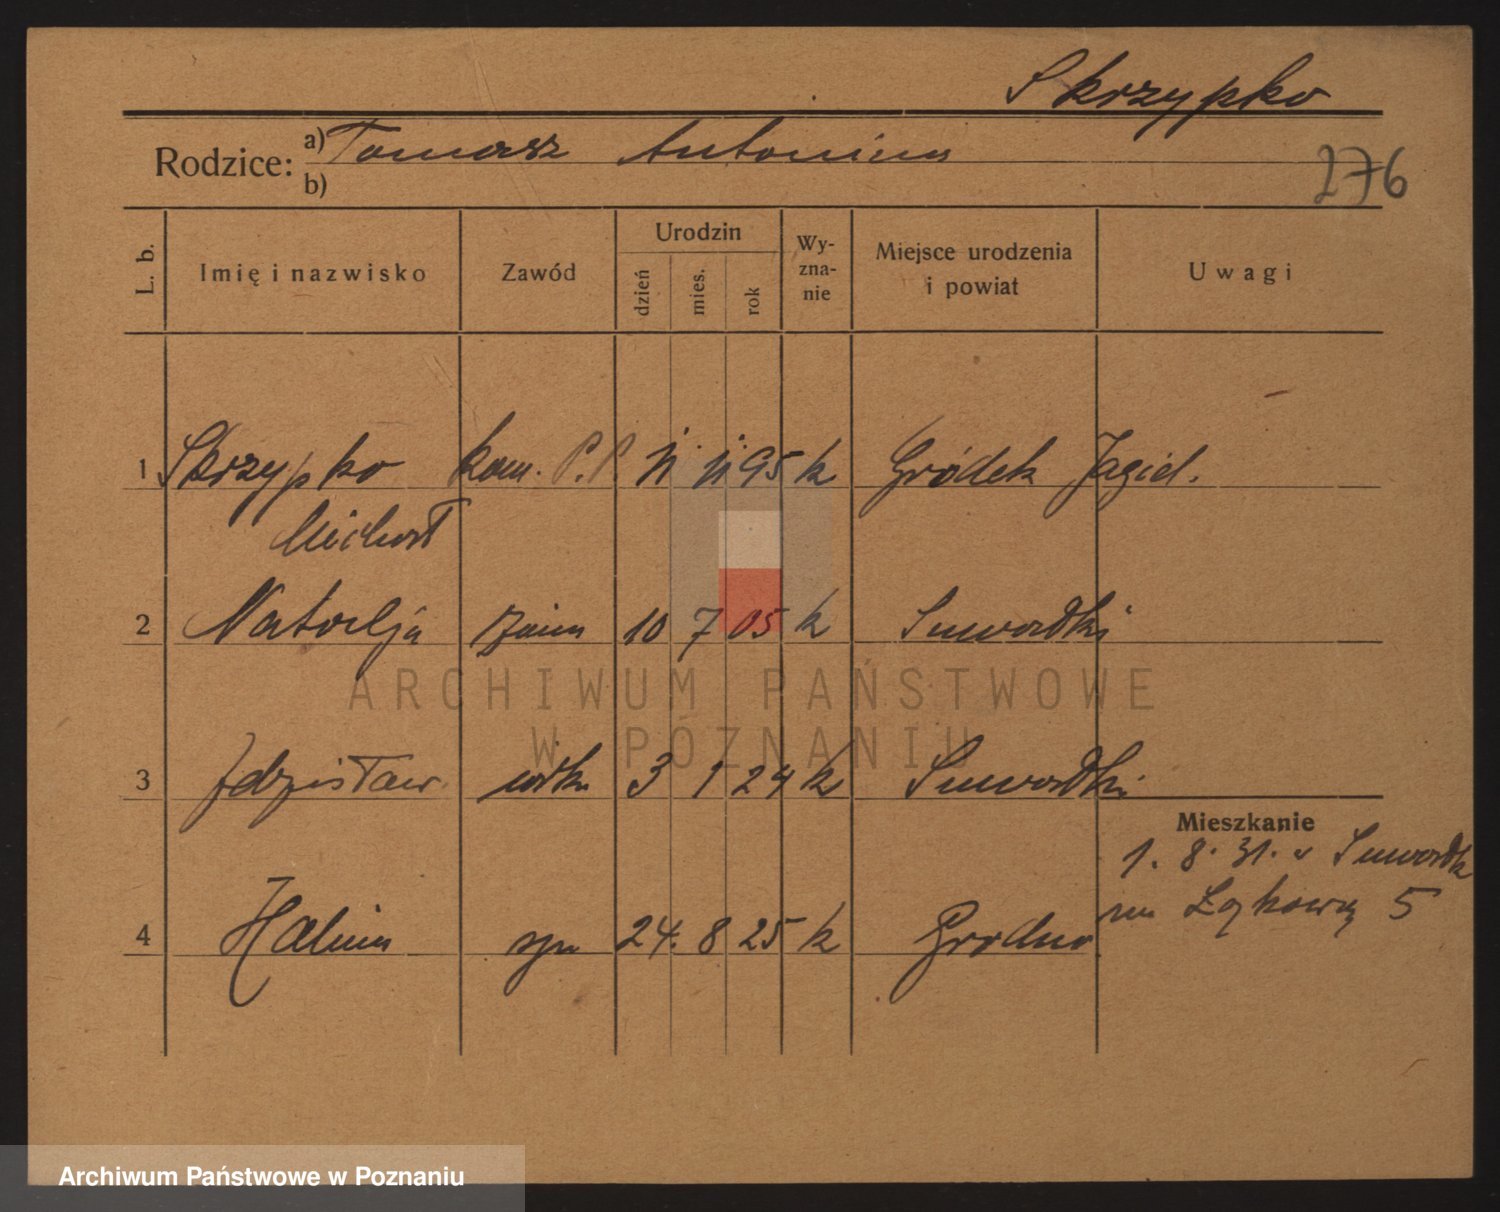 Skrzypko
Rodzice: a) Tomasz Antonina
b)
276
L. b. Imię i nazwisko Zawód Urodzin dzień mies. rok Wyznanie Miejsce urodzenia i powiat Uwagi
1 Skrzypko kom. P.P. 11 11 95 k Gródek Jagiel.
Michał
2 Natalja 10 7 05 k Suwałki
ARCHIWUM PAŃSTWOWE
W POZNANIU
3 Zdzisław 3 1 24 k Suwałki
Mieszkanie
1. 8. 31. Suwałk
Łąkowa 5
4 Halina 24. 8 25 k Grodno
Archiwum Państwowe w Poznaniu